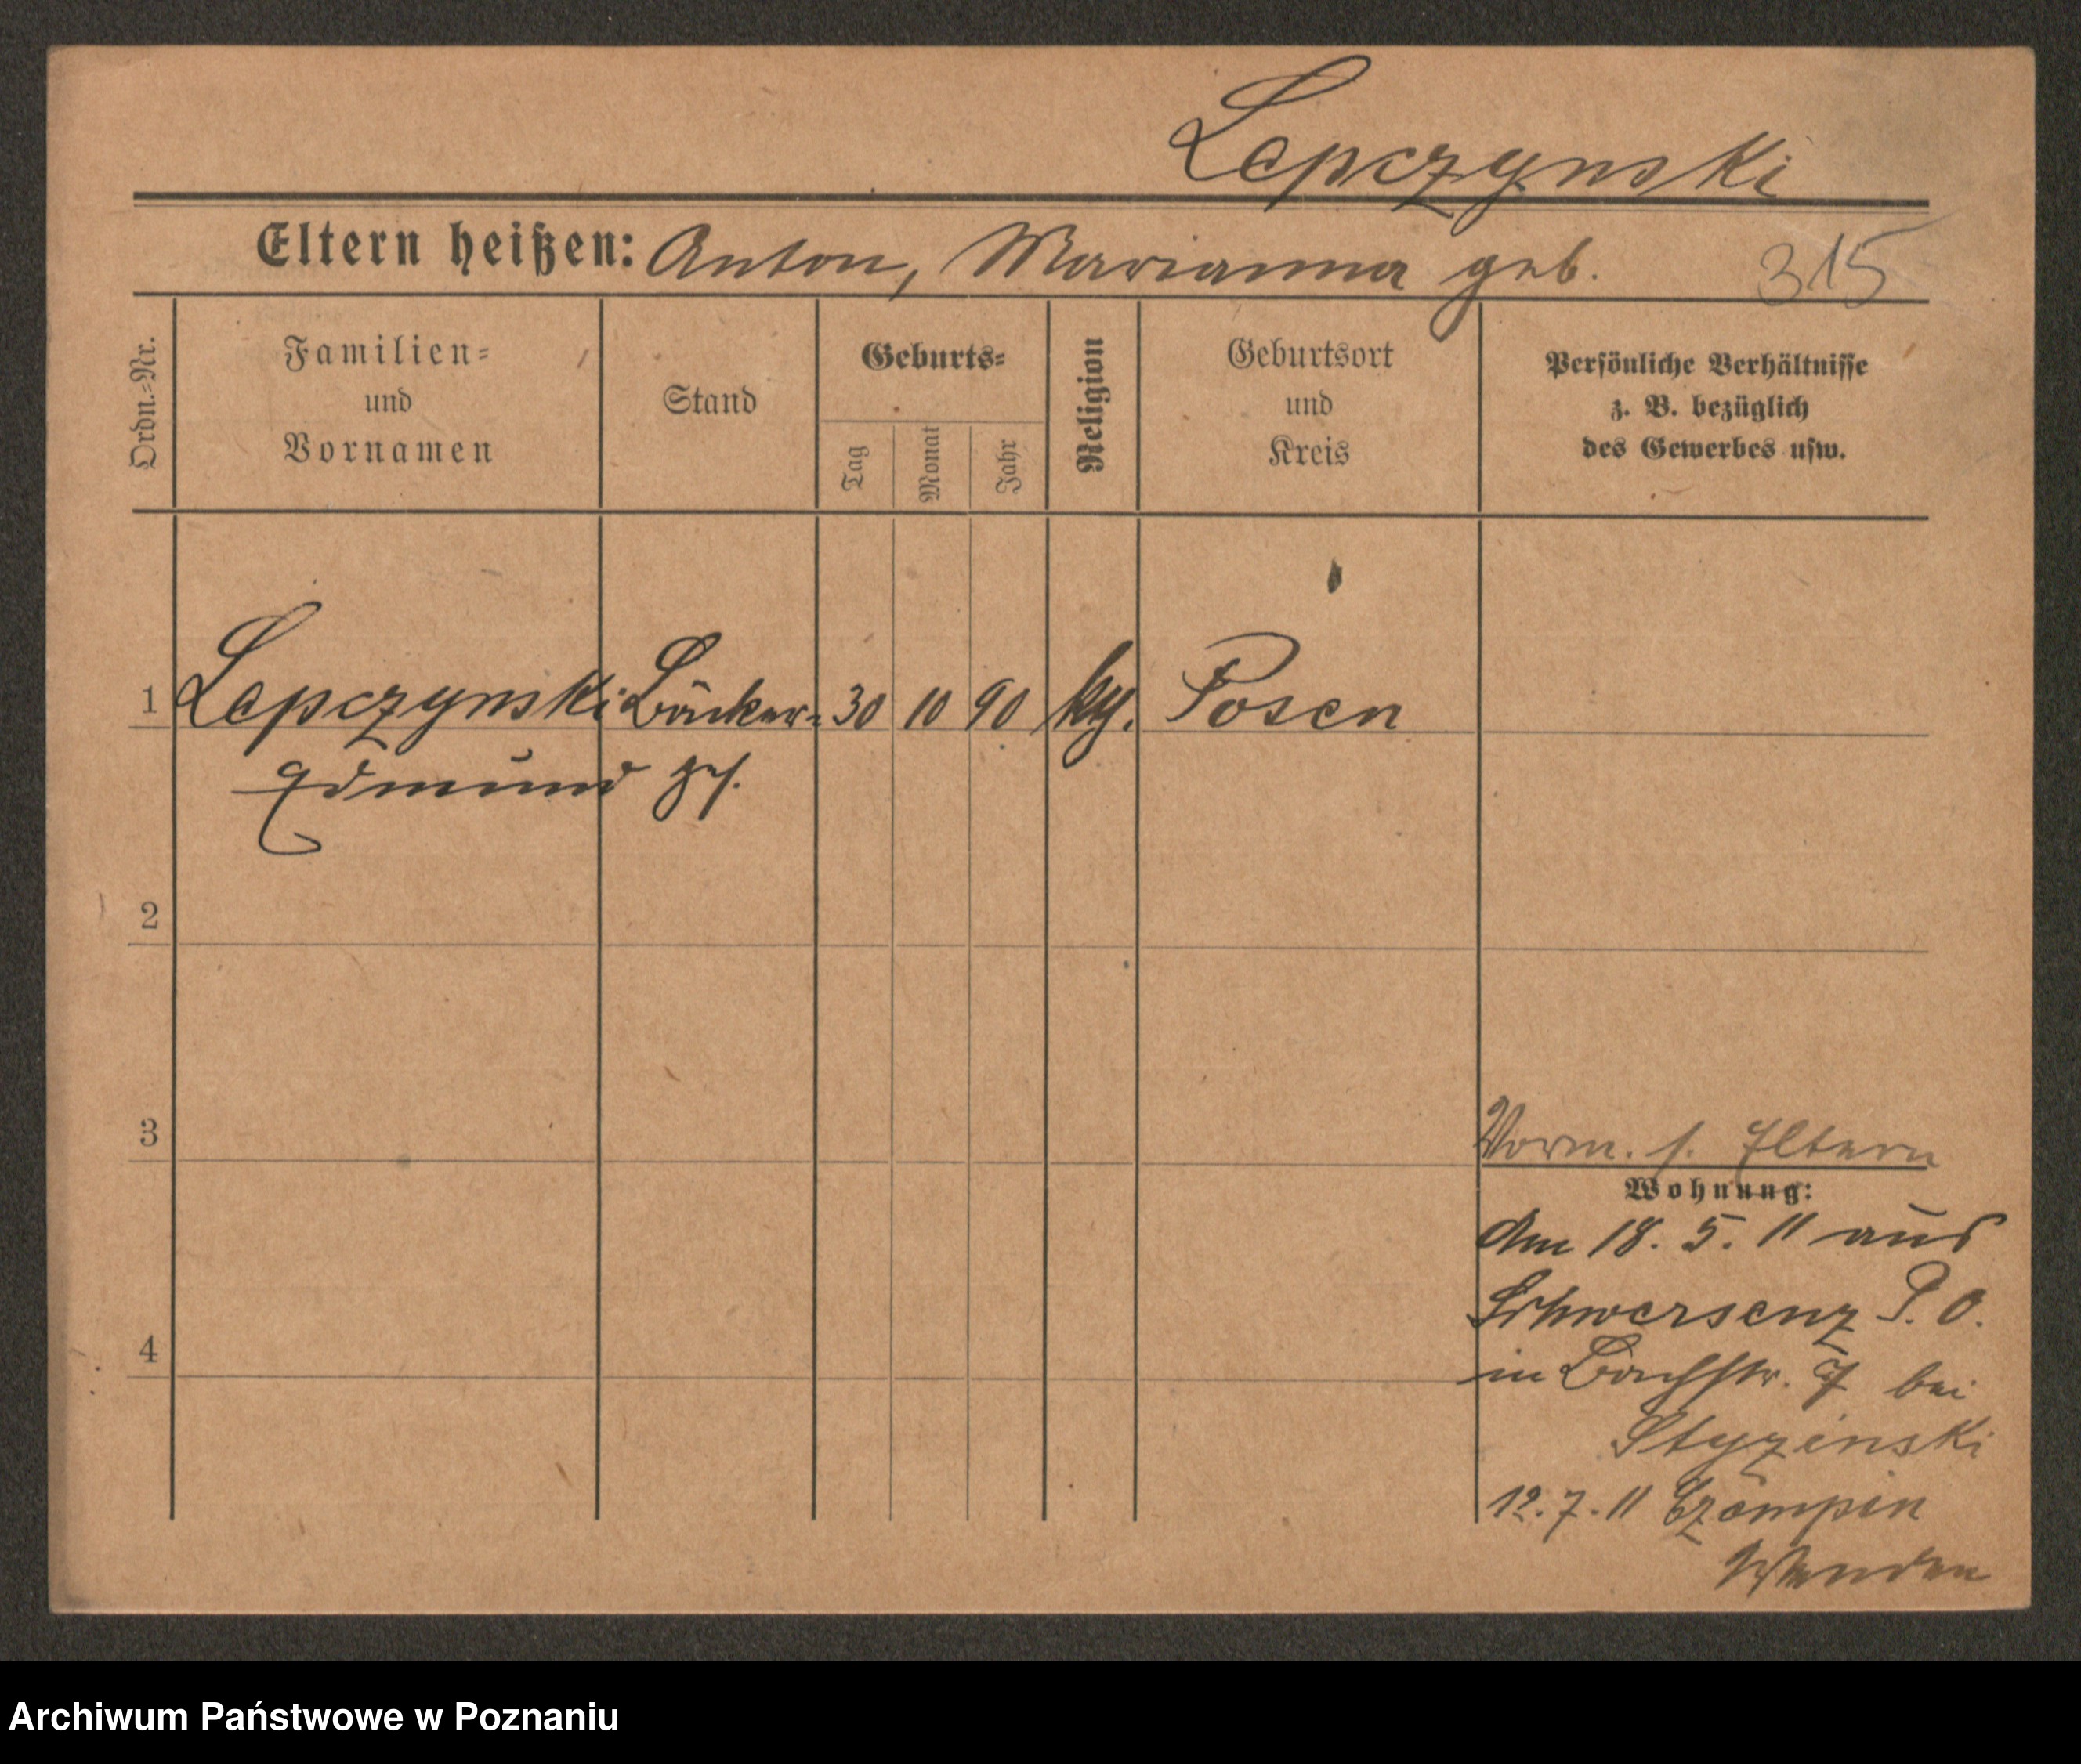 Lepczynski
Eltern heißen: Anton, Marianna geb. 315
Ordn.-Nr. Familien- und Vornamen Stand Geburts- Tag Monat Jahr Religion Geburtsort und Kreis Persönliche Verhältnisse z. B. bezüglich des Gewerbes usw.
1 Lepczynski Bäcker- 30 10 90 kg. Posen
Edmund gs.
2
3
Vorm. s. Eltern
Wohnung:
Am 18. 5. 11 aus
Schwersenz P. O.
4
in Bachstr. 7 bei
Styzinski
12. 7. 11 Czempin
Wenden
Archiwum Państwowe w Poznaniu